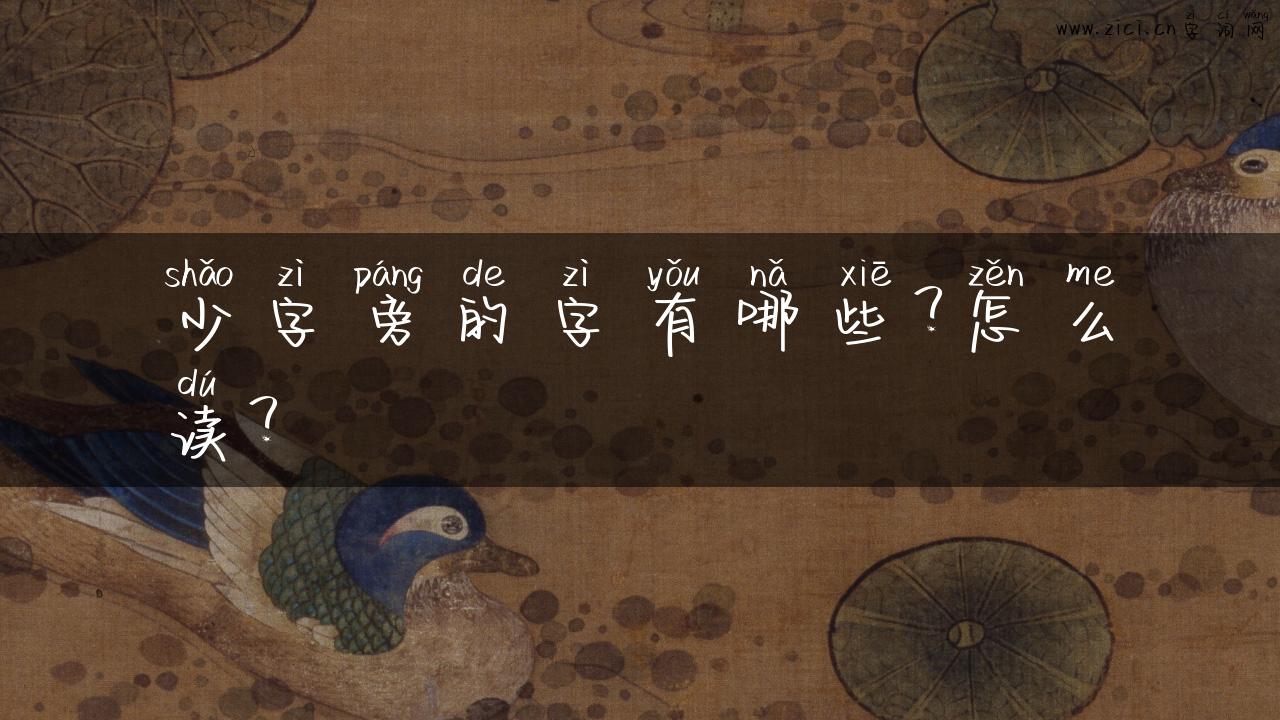 zì cí wǎng
www.zici.cn 字词网
shǎo zì páng de zì yǒu nǎ xiē zěn me
少字旁的字有哪些？怎么
dú
读？